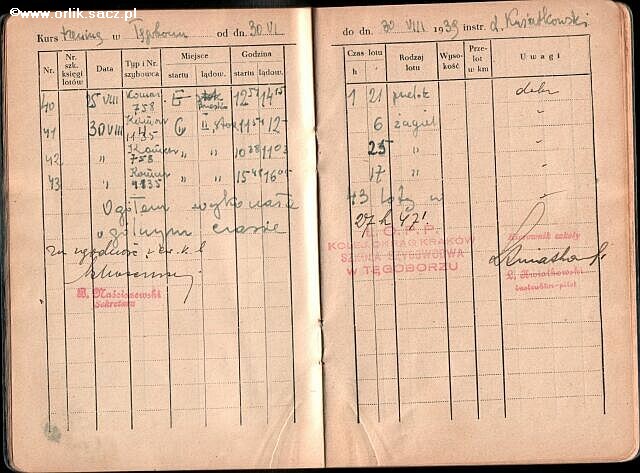 www.orlik.sacz.pl
Kurs trening w Tęgoborzu od dn. 30 VI do dn. 30 VIII 1939 instr. L. Kwiatkowski
Nr. Nr. szk. księgi lotów Data Typ i Nr. szybowca Miejsce startu lądow. Godzina startu lądow. Czas lotu h Rodzaj lotu Wysokość Przelot w km Uwagi
40 25 VIII Komar 758 1 21 dobr
41 30 VIII Komar 6 żagiel "
42. " Komar 758 10 28 11 03 25 " "
43 " Komar 17 " "
Ogółem wykonał 43 loty w
ogólnym czasie 27 h 47'
za zgodność
B. Maściszewski
Sekretarz
L.O.P.P.
KOLEJ. OKRĄG KRAKÓW
SZKOŁA SZYBOWCOWA
W TĘGOBORZU
Kierownik szkoły
L. Kwiatkowski
instruktor-pilot